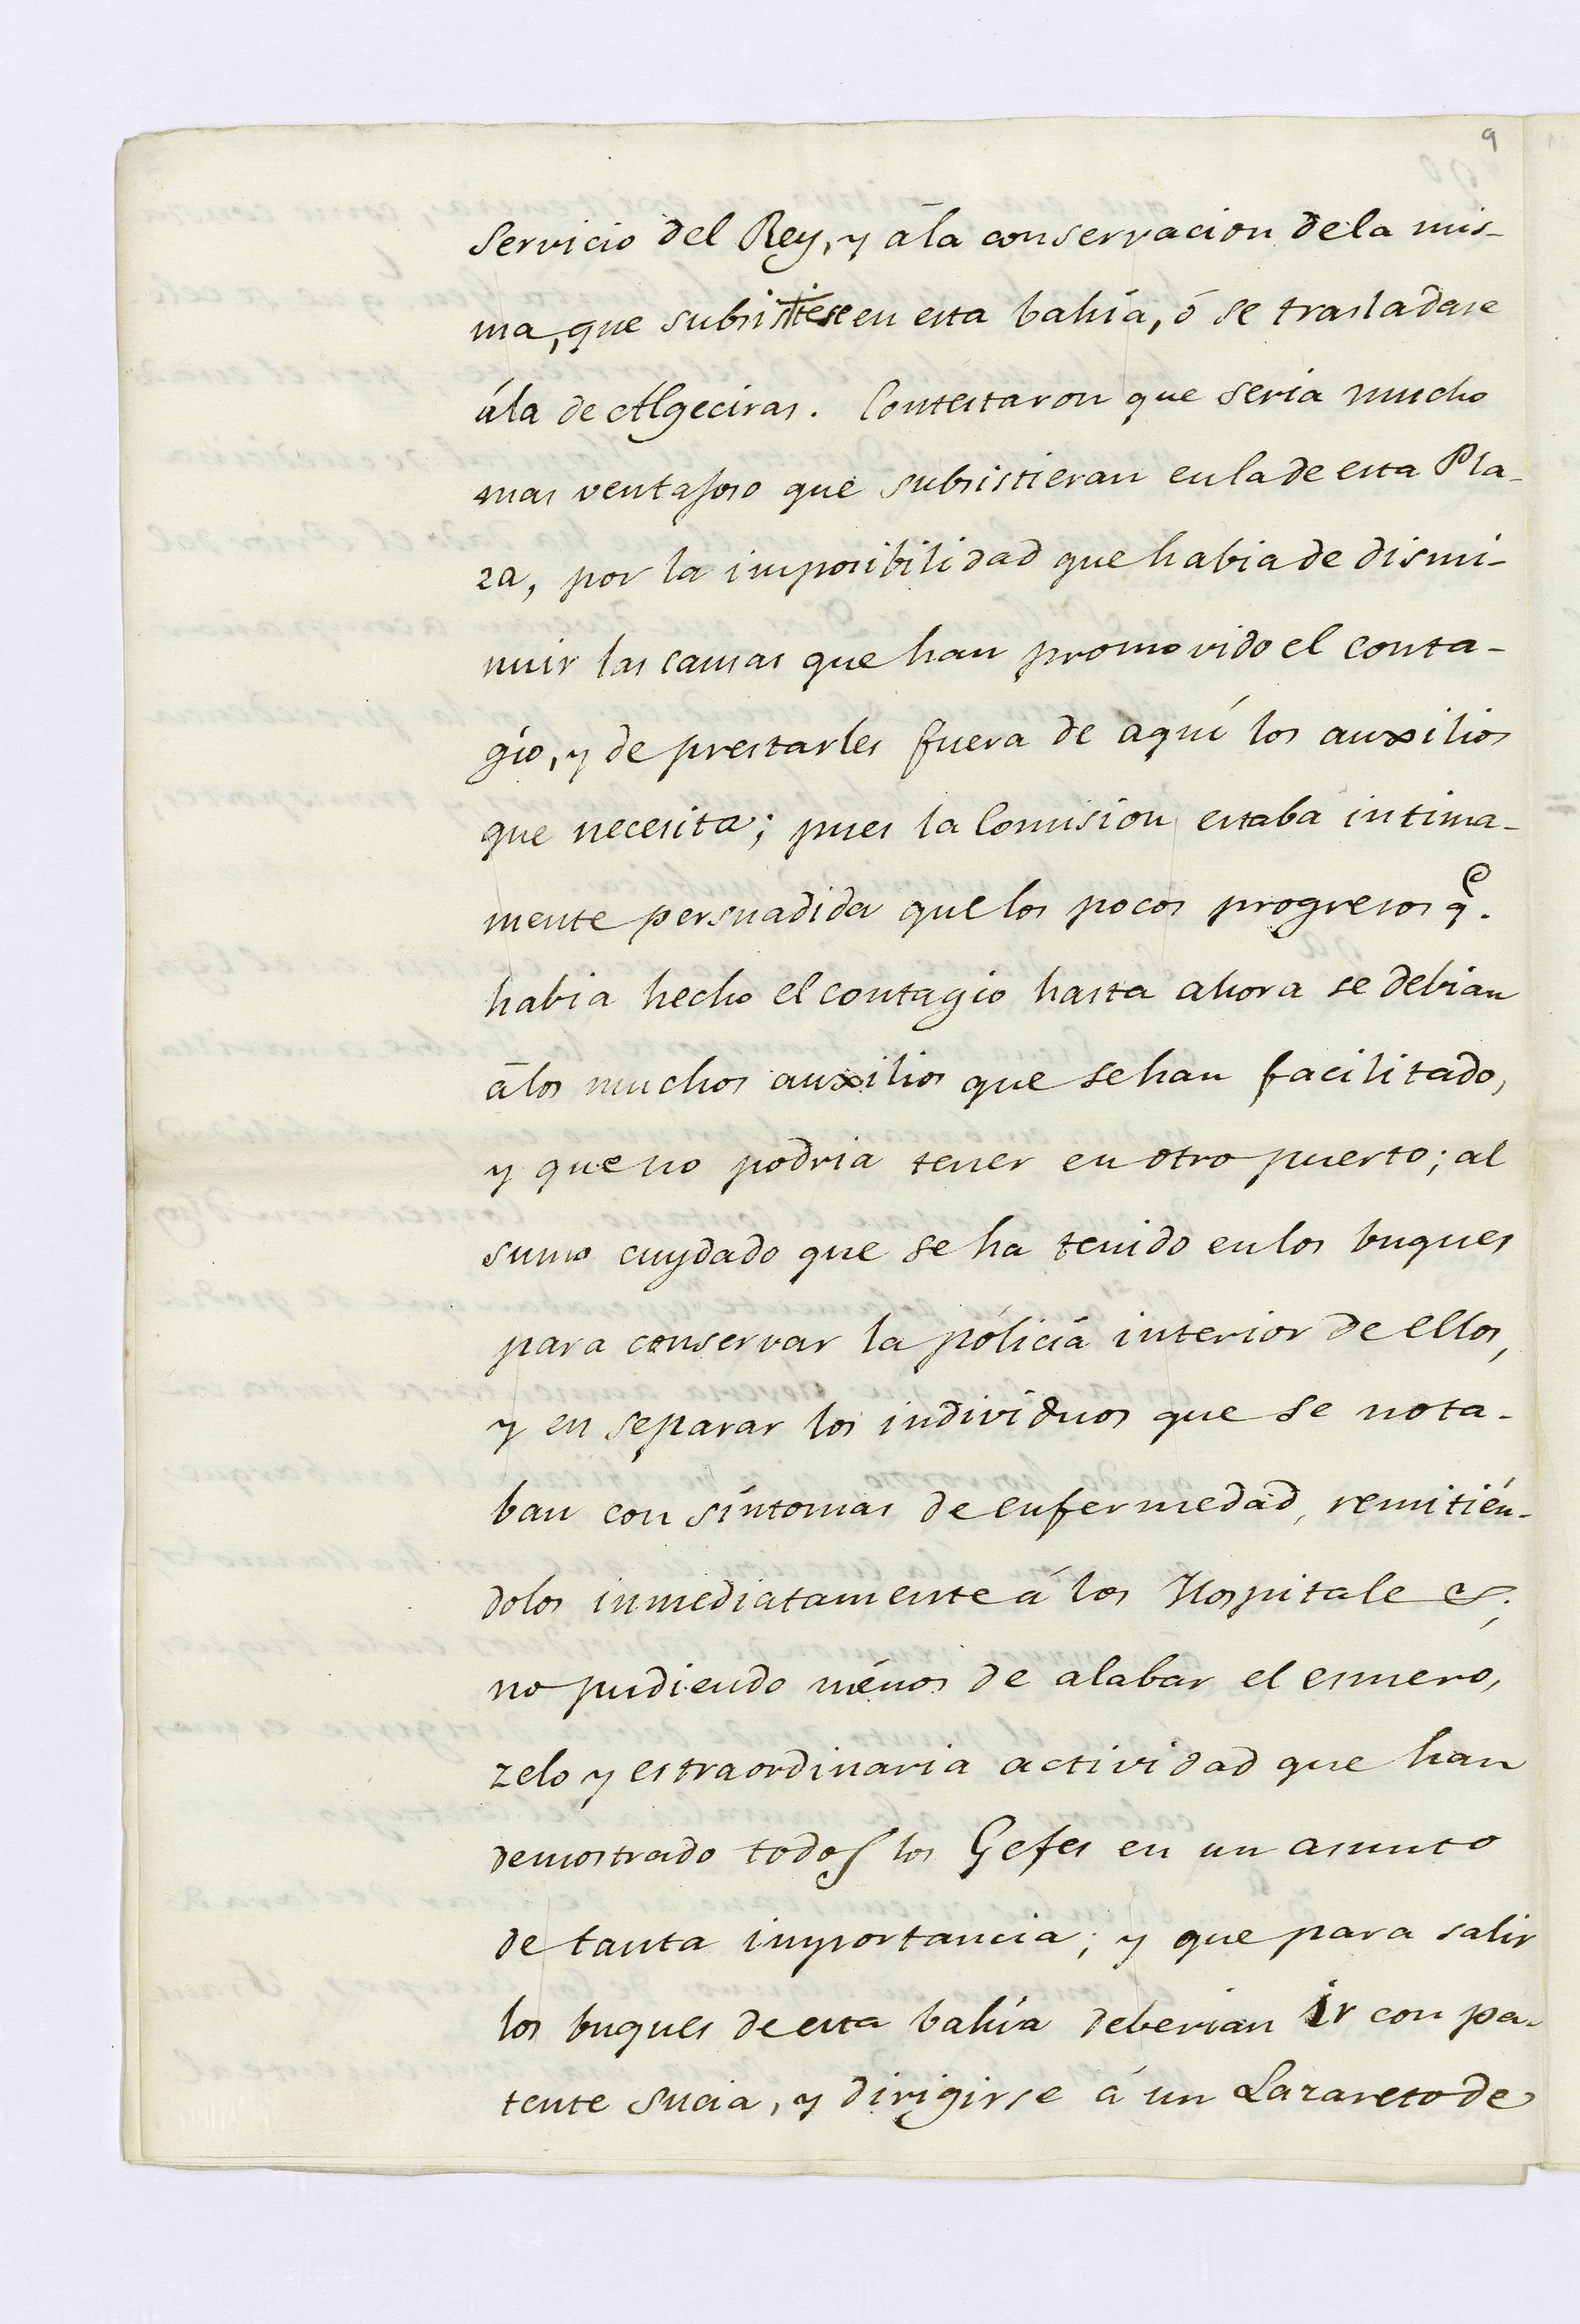 9
Servicio del Rey, y á la conservacion de la mis-
ma, que subsistiese en esta bahía, ó se trasladase
á la de Algeciras. Contestaron que seria mucho
mas ventajoso que subsistieran en la de esta Pla-
za, por la imposibilidad que habia de dismi-
nuir las causas que han promovido el conta-
gio, y de prestarles fuera de aquí los auxilios
que necesita; pues la Comision estaba intima-
mente persuadida que los pocos progresos q.e
habia hecho el contagio hasta ahora se debian
á los muchos auxilios que se han facilitado,
y que no podria tener en otro puerto; al
sumo cuydado que se ha tenido en los buques
para conservar la pólicía interior de ellos,
y en separar los individuos que se nota-
ban con síntomas de enfermedad, remitién-
dolos inmediatamente á los Hospitales;
no pudiendo ménos de alabar el esmero,
zelo y estraordinaria actividad que han
demostrado todos los Gefes en un asunto
de tanta importancia; y que para salir
los buques de esta bahía deberian ir con pa-
tente sucia, y dirigirse á un Lazareto de